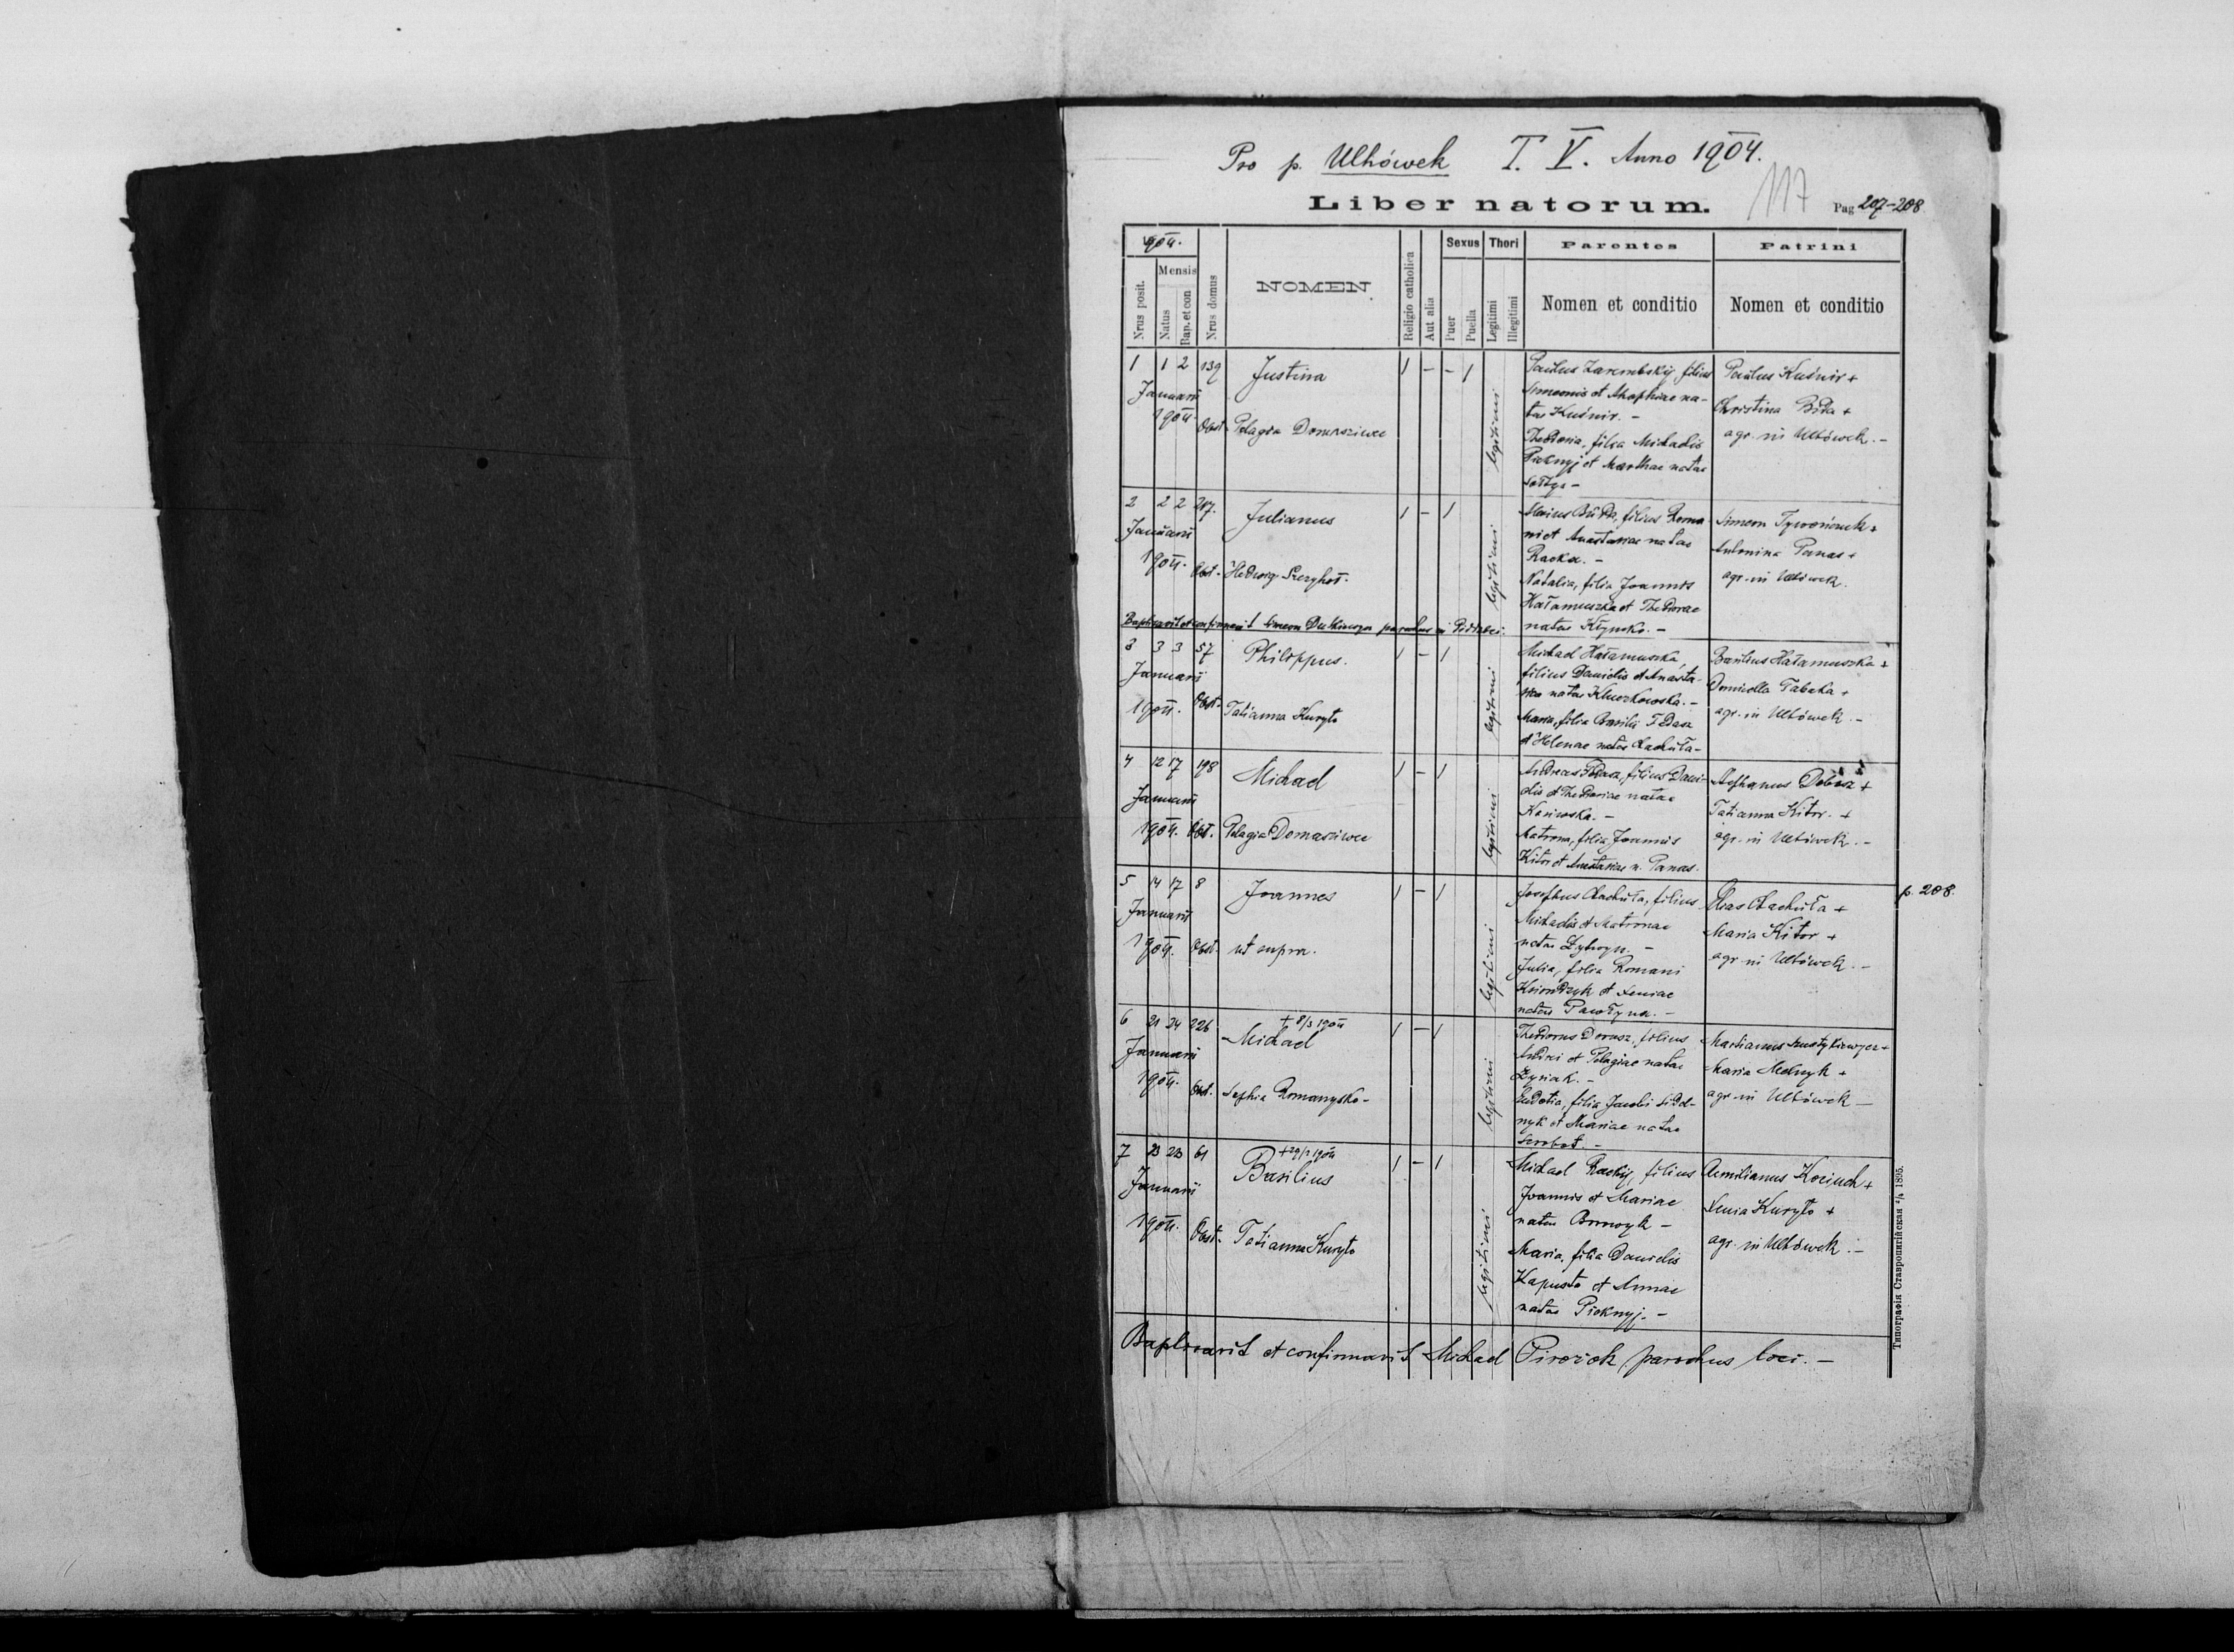 Pro p. Uhówek T. V. Anno 1904.
117
Liber natorum.
Pag 207-208
1904.
Sexus Thori Parentes Patrini
Mensis
Nrus posit.
Natus
Bap. et con
Nrus domus
NOMEN
Religio catholica
Aut alia
Puer
Puella
Legitimi
Illegitimi
Nomen et conditio
Nomen et conditio
1 1 2 139 Justina 1 - - 1
Januarii
1904. Obst. Pelagia Domasziwec
legitimi
Paulus Zarembskij, filius
Simeonis et Ahaphiae na-
tae Kuśnir. -
Theodosia, filia Michaelis
Pieknyj et Marthae natae
Paulus Kuśnir +
Christina Bida +
agr. in Uhówek. -
2 2 2 217. Julianus 1 - 1
Januarii
1904. Obst. Hedwig
legitimi
filius Roma-
ni et Anastasiae natae
Racka. -
Natalia, filia Joannis
Hałamuszka et Theodorae
natae
Simeon +
Antonina Panas +
agr. in Uhówek.
Baptisavit et confirmavit Simeon parochus in
3 3 3 57 Philippus. 1 - 1
Januarii
1904. Obst. Tatianna Kuryło
legitimi
Michael Hałamuszka,
filius Danielis et Anasta-
siae natae Kluczkowska. -
Maria, filia Basilii Fedasz
et Helenae natae Łachuta -
Basilius Hałamuszka +
Domicella Tabaka +
agr. in Uhówek. -
4 12 17 198 Michael 1 - 1
Januarii
1904. Obst. Pelagia Domasziwec
legitimi
Andreas Fedasz, filius Dani-
elis et Theodosiae natae
Matrona, filia Joannis
Kitor et Anastasiae n. Panas.
Stephanus +
Tatianna Kitor. +
agr. in Uhówek. -
5 14 17 8 Joannes 1 - 1
Januarii
1904. Obst. ut supra.
legitimi
Josephus Łachuta, filius
Michaelis et Matronae
natae
Julia, filia Romani
et Xeniae
natae Pawłyna. -
Elias Łachuta +
Maria Kitor +
agr. in Uhówek. -
p. 208.
6 21 24 226 + 8/3 1904
Michael 1 - 1
Januarii
1904. Obst. Sophia Romanysko -
legitimi
Theodorus Dorosz, filius
Andrei et Pelagiae natae
Zyniak. -
Eudotia, filia Jacobi Sidel-
nyk et Mariae natae
Marianus +
Maria Melnyk +
agr. in Uhówek -
7 23 23 61 + 29/1 1904
Basilius 1 - 1
Januarii
1904. Obst. Tatianna Kuryło
legitimi
Michael Rackij, filius
Joannis et Mariae
natae
Maria, filia Danielis
Kapusta et Annae
natae Pieknyj. -
Aemilianus Kociuch +
Xenia Kuryło +
agr. in Uhówek. -
Baptisavit et confirmavit Michael Pirożok, parochus loci. -
Типографія Ставропигійская 4/4 1895.